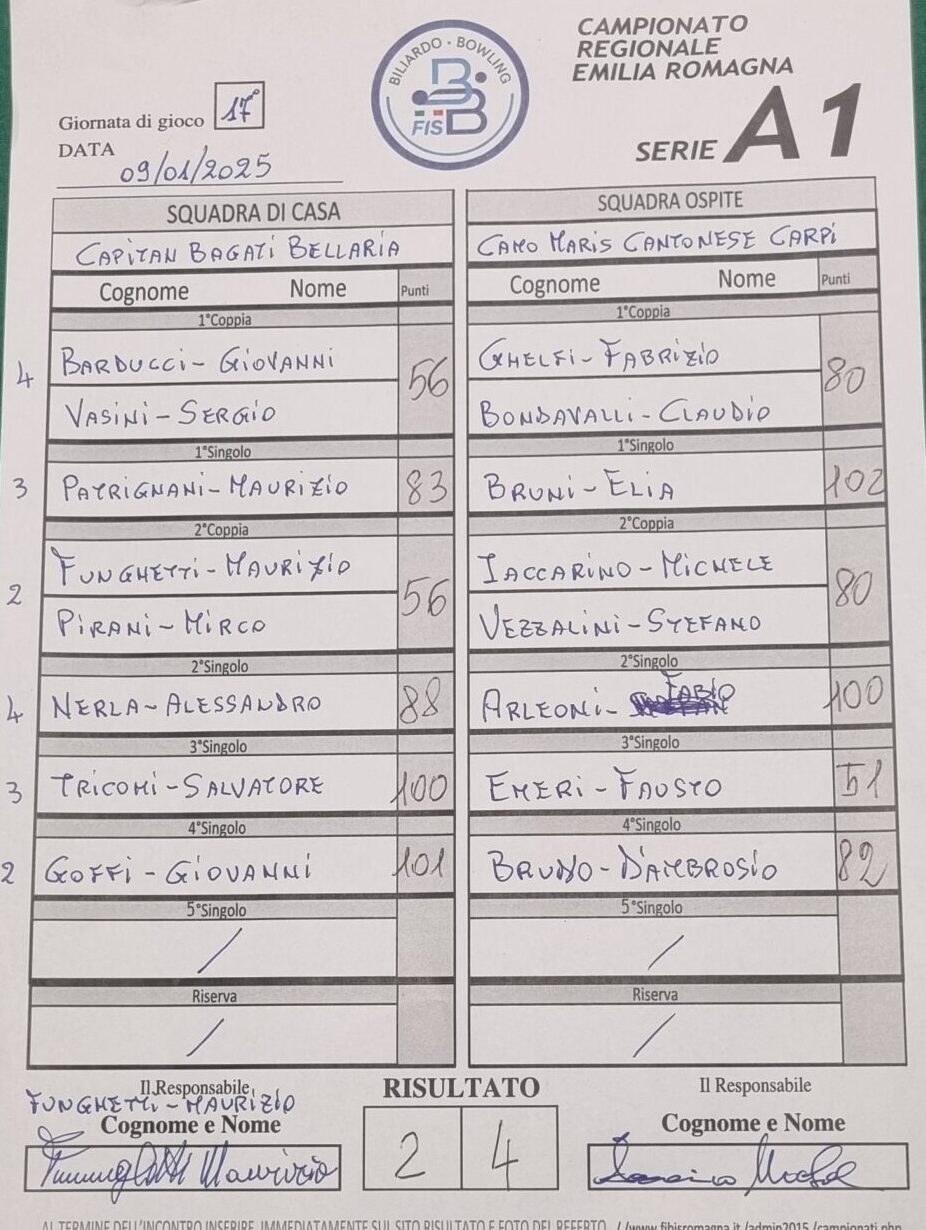 CAMPIONATO
REGIONALE
EMILIA ROMAGNA
SERIE A1
BILIARDO · BOWLING
FIS BB
Giornata di gioco 17°
DATA
09/01/2025
SQUADRA DI CASA SQUADRA OSPITE
CAPITAN BAGATI BELLARIA CAMO MARIS CANTONESE CARPI
Cognome Nome Punti Cognome Nome Punti
1°Coppia 1°Coppia
4 BARDUCCI - GIOVANNI 56 GHELFI - FABRIZIO 80
VASINI - SERGIO BONDAVALLI - CLAUDIO
1°Singolo 1°Singolo
3 PATRIGNANI - MAURIZIO 83 BRUNI - ELIA 102
2°Coppia 2°Coppia
2 FUNGHETTI - MAURIZIO 56 IACCARINO - MICHELE 80
PIRANI - MIRCO VEZZALINI - STEFANO
2°Singolo 2°Singolo
4 NERLA - ALESSANDRO 88 ARLEONI - FABIO 100
3°Singolo 3°Singolo
3 TRICOMI - SALVATORE 100 EMERI - FAUSTO 51
4°Singolo 4°Singolo
2 GOFFI - GIOVANNI 101 BRUNO - D'AMBROSIO 82
5°Singolo 5°Singolo
/ /
Riserva Riserva
/ /
Il Responsabile RISULTATO Il Responsabile
FUNGHETTI - MAURIZIO
Cognome e Nome Cognome e Nome
Funghetti Maurizio 2 4
AL TERMINE DELL'INCONTRO INSERIRE IMMEDIATAMENTE SUL SITO RISULTATO E FOTO DEL REFERTO //www.fibisromagna.it/admin2015/campionati.php